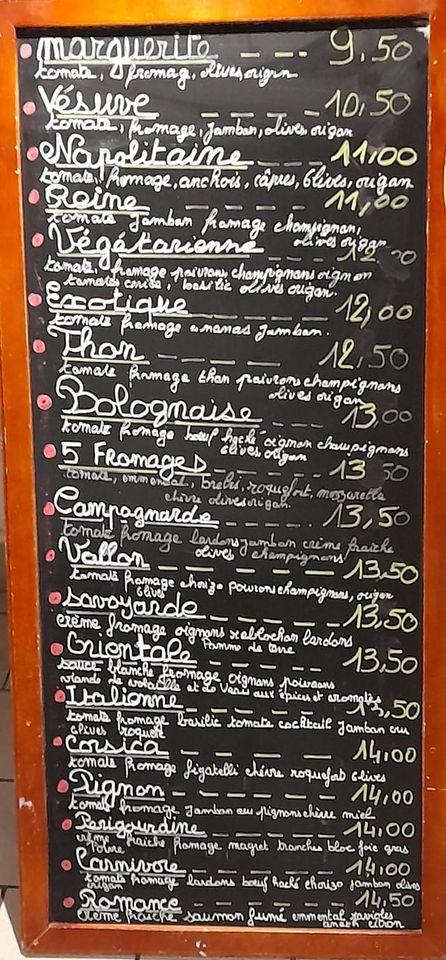 marguerite --- 9,50
tomate, fromag, olives origan
Vésuve --- 10,50
tomate, fromage, jambon, olives, origan
Napolitaine --- 11,00
tomate, fromage, anchois, câpres, Olives, origan
Reine --- 11,00
tomate jambon fromage champignon,
olives origan
Végétarienne --- 12
tomate, fromage poivrons, champignons oignon
tomates cerise, basilic olives origan.
Exotique --- 12,00
tomate fromage ananas jambon.
Thon --- 12,50
tomate fromage thon poivrons champignons
olives origan
Bolognaise --- 13,00
tomate fromage bœuf haché oignon champignons
olives origan
5 Fromages --- 13 50
tomate, emmental, brebis, roquefort, mozzarella
chèvre olives origan.
Campagnarde --- 13,50
tomate fromage lardons jambon crème fraiche
olives champignons
Vallon --- 13,50
tomate fromage chorizo poivrons champignons, origan
olives
Savoyarde --- 13,50
crème, fromage oignons reblochon lardons
Pomme de terre
Orientale --- 13,50
sauce blanche fromage oignons poivrons
viande de volaille et de veau aux épices et aromates
Italienne --- 13,50
tomate fromage basilic tomate cocktail jambon cru
olives roquett
Corsica --- 14,00
tomate fromage figatelli chèvre roquefort olives
Pignon --- 14,00
tomate fromage jambon cru pignons chèvre miel
Perigourdine --- 14,00
crème fraiche fromage magret tranches bloc foie gras
Poivre
Carnivore --- 14,00
tomate fromage lardons bœuf haché chorizo jambon olives
origan
Romance --- 14,50
crème fraiche saumon fumé emmental
aneth citron